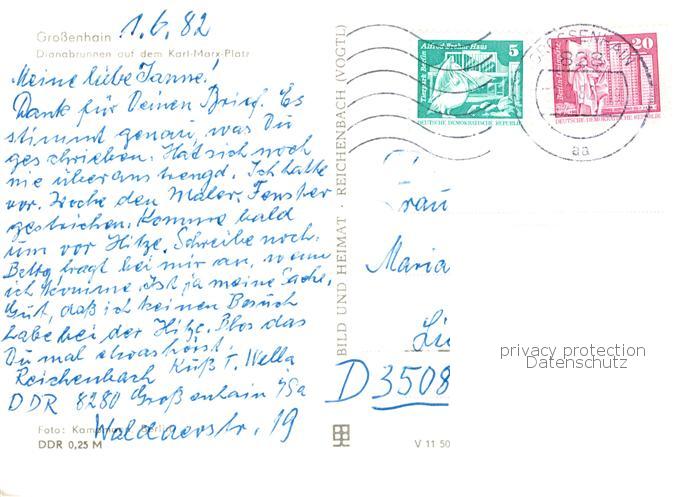 1.6.82
Großenhain
Dianabrunnen auf dem Karl-Marx-Platz
Meine liebe Janne!
Dank für Deinen Brief. Es
stimmt genau, was Du
geschrieben. Hat sich noch
nie überanstrengd. Ich hatte
vor. Woche den Maler, Fenster
gestrichen. Komme bald
um vor Hitze. Schreibe noch.
fragt bei mir an, wenn
ich komme. Ist ja meine Sache.
Gut, daß ich keinen Besuch
habe bei der Hitze. Blos das
Du mal etwas hörst.
Reichenbach Kuß T. Wella
DDR 8280 Großenhain
19
Foto: Berlin
DDR 0,25 M
BILD UND HEIMAT · REICHENBACH (VOGTL)
V 11 50
Alfred-Brehm-Haus
Tierpark Berlin
5
DEUTSCHE DEMOKRATISCHE REPUBLIK
20
DEUTSCHE DEMOKRATISCHE REPUBLIK
GROSSENHAIN
aa
Frau
Maria
D 3508
privacy protection
Datenschutz